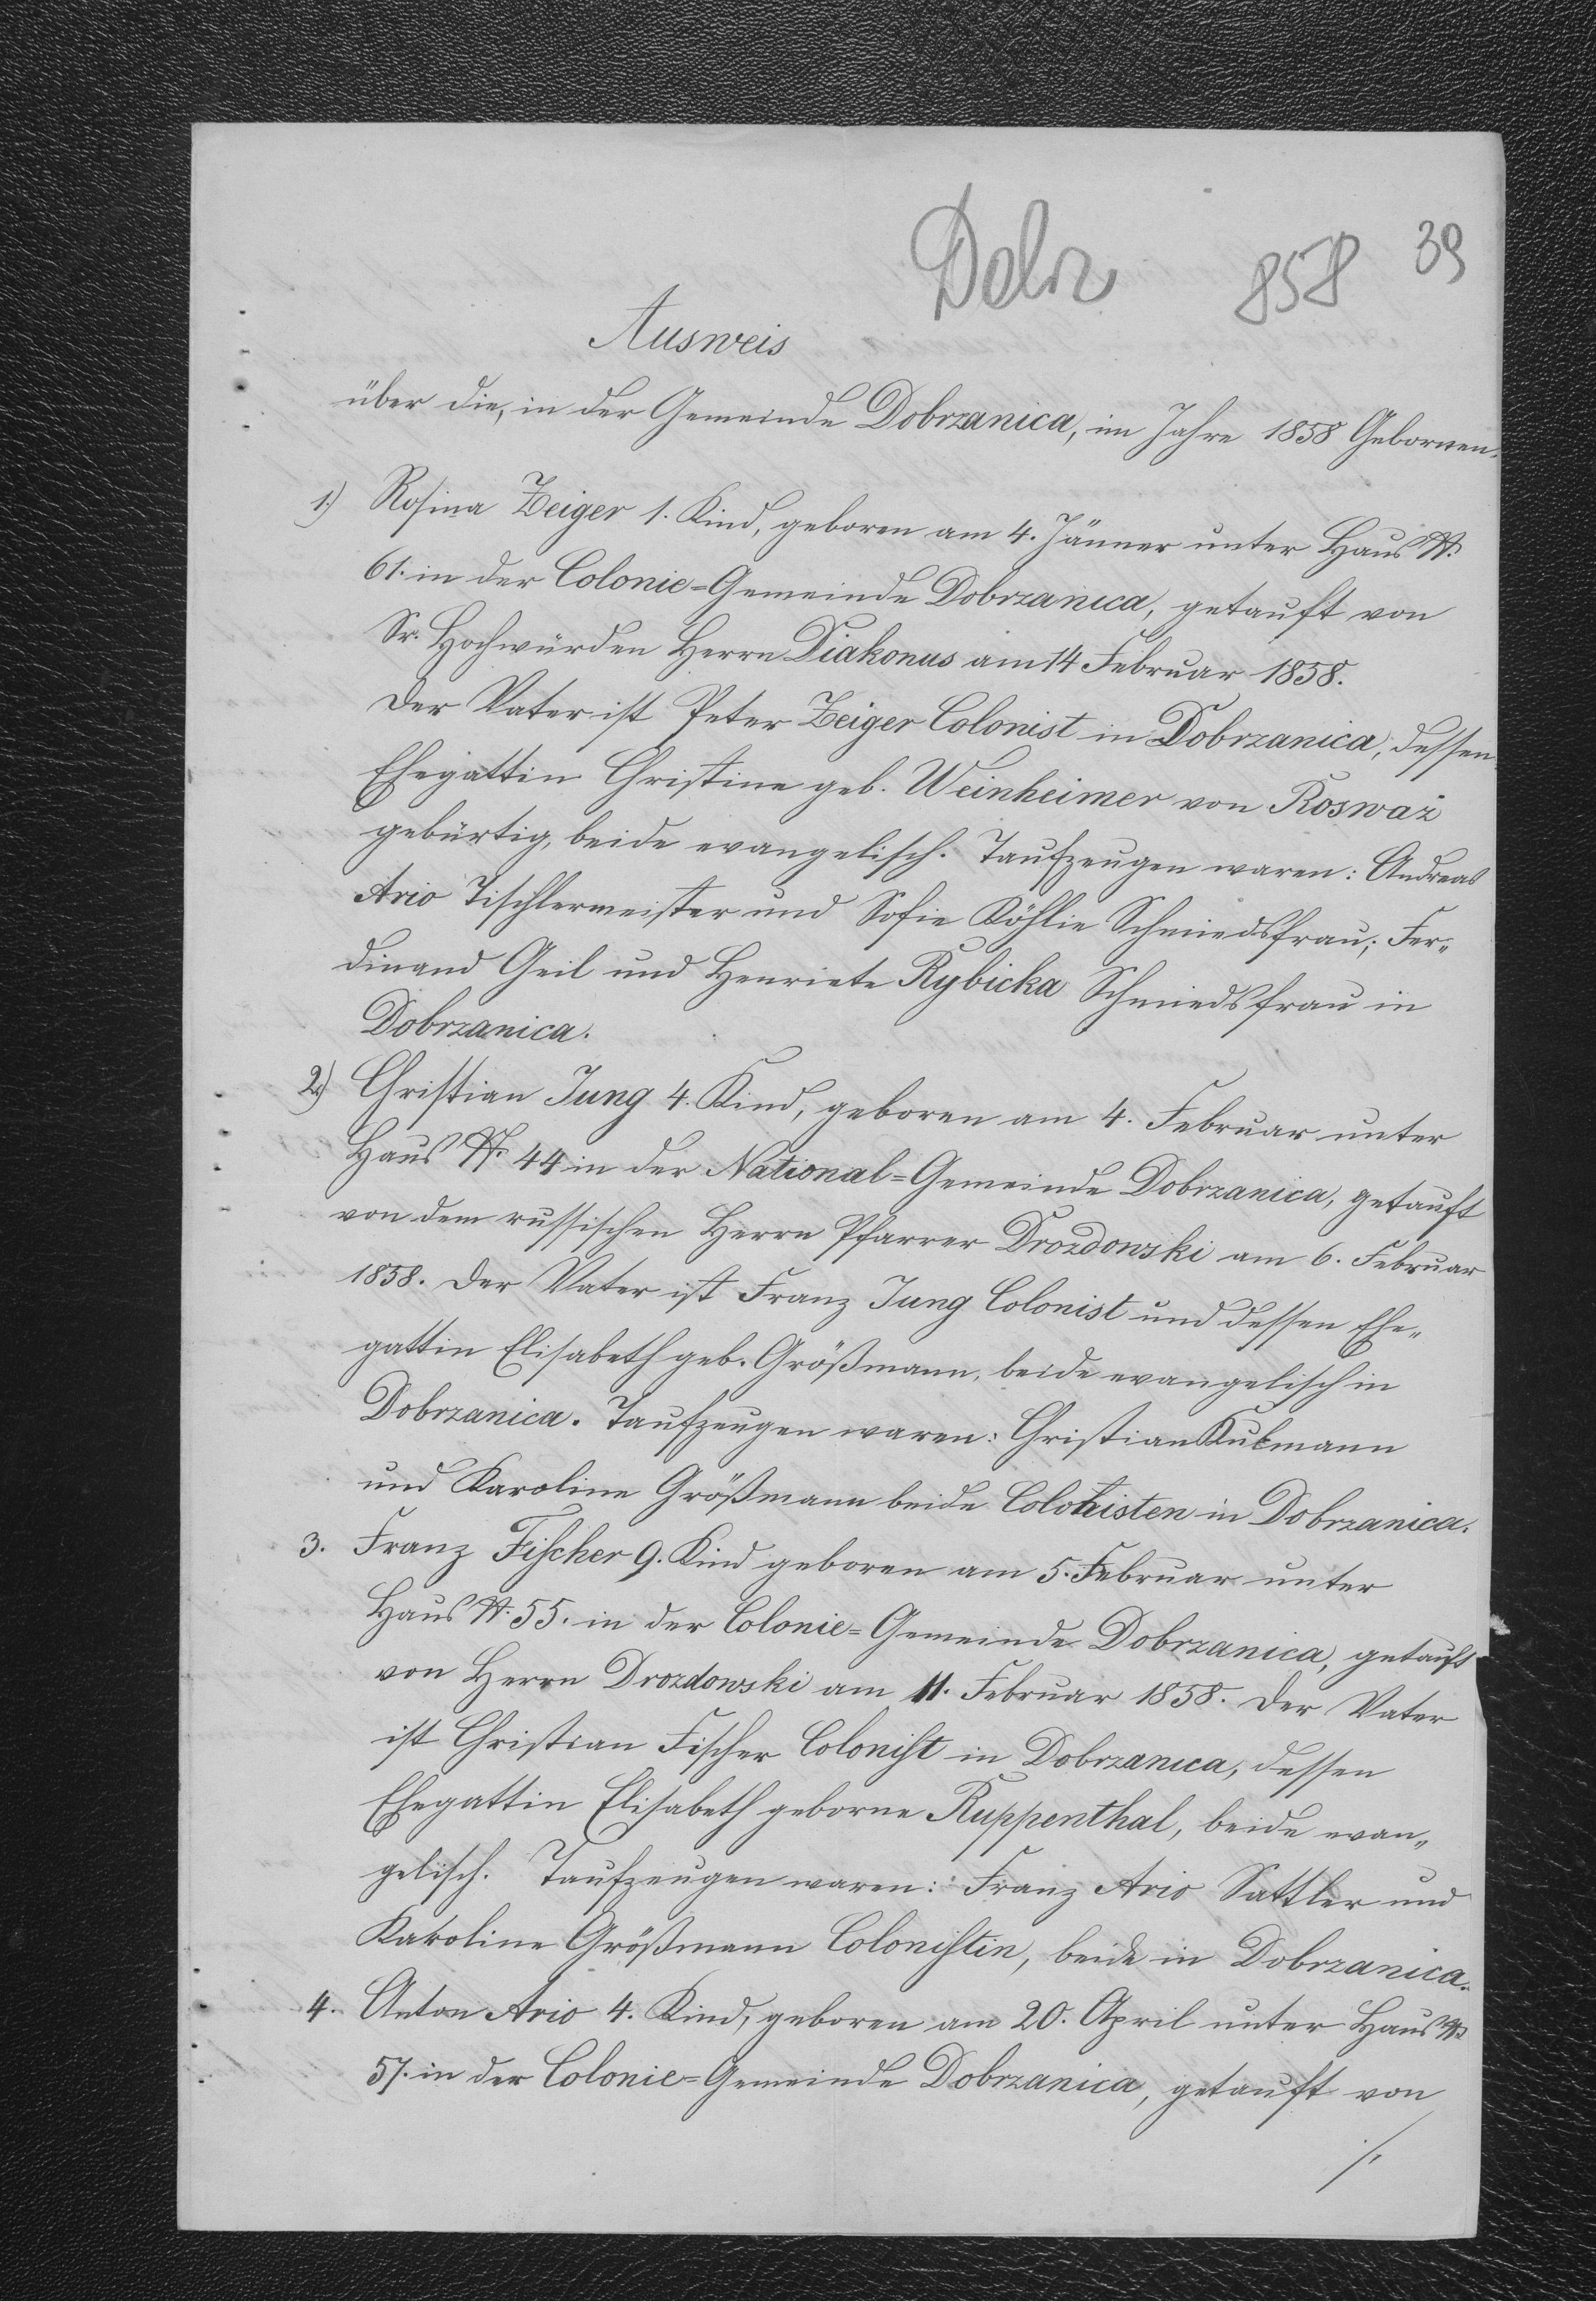 Dobrz 858 39
Ausweis
über die, in der Gemeinde Dobrzanica, im Jahre 1858 Gebornen.
1.) Rosina Zeiger 1. Kind, geboren am 4. Jänner unter Haus N.
61. in der Colonie=Gemeinde Dobrzanica, getauft von
Sr. Hochwürden Herrn Diakonus am 14 Februar 1858.
Der Vater ist Peter Zeiger Colonist in Dobrzanica, dessen
Ehegattin Christine geb. Weinheimer von Rosważ
gebürtig, beide evangelisch. Taufzeugen waren: Andreas
Ario Tischlermeister und Sofie Köhlie Schmiedsfrau; Fer„
dinand Geil und Henriete Rybicka Schmiedsfrau in
Dobrzanica.
2.) Christian Jung 4. Kind, geboren am 4. Februar unter
Haus N. 44 in der National=Gemeinde Dobrzanica, getauft
von dem russischen Herrn Pfarrer Drozdowski am 6. Februar
1858. Der Vater ist Franz Jung Colonist und dessen Ehe„
gattin Elisabeth geb. Größmann, beide evangelisch in
Dobrzanica. Taufzeugen waren: Christian Kulmann
und Karoline Größmann beide Colonisten in Dobrzanica.
3. Franz Fischer 9. Kind geboren am 5. Februar unter
Haus N. 55. in der Colonie=Gemeinde Dobrzanica, getauft
von Herrn Drozdowski am 11. Februar 1858. Der Vater
ist Christian Fischer Colonist in Dobrzanica, dessen
Ehegattin Elisabeth geborne Ruppenthal, beide evan„
gelisch. Taufzeugen waren: Franz Ario Sattler und
Karoline Größmann Colonistin, beide in Dobrzanica.
4. Anton Ario 4. Kind, geboren am 20. April unter Haus N.
57. in der Colonie=Gemeinde Dobrzanica, getauft von
./.